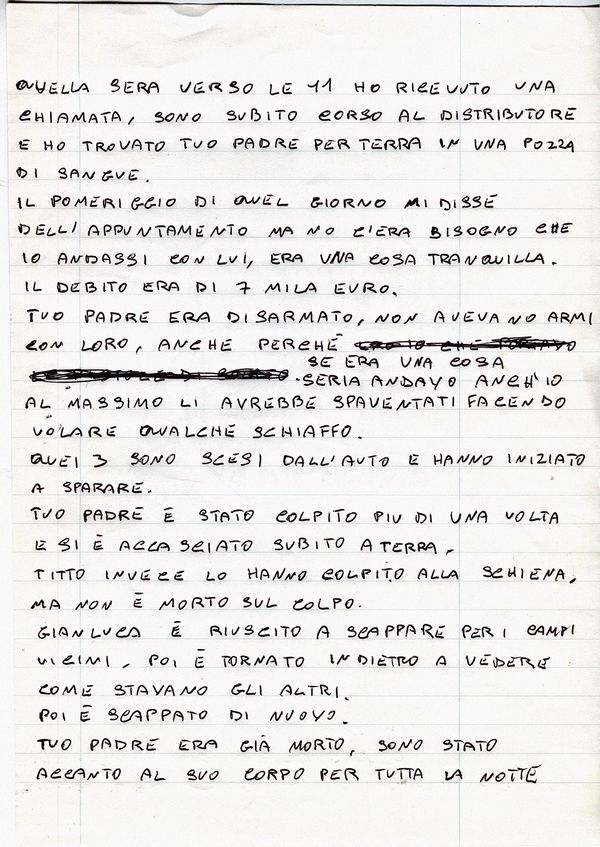 QUELLA SERA VERSO LE 11 HO RICEVUTO UNA
CHIAMATA, SONO SUBITO CORSO AL DISTRIBUTORE
E HO TROVATO TUO PADRE PER TERRA IN UNA POZZA
DI SANGUE.
IL POMERIGGIO DI QUEL GIORNO MI DISSE
DELL'APPUNTAMENTO MA NO C'ERA BISOGNO CHE
IO ANDASSI CON LUI, ERA UNA COSA TRANQUILLA.
IL DEBITO ERA DI 7 MILA EURO.
TUO PADRE ERA DISARMATO, NON AVEVANO ARMI
CON LORO, ANCHE PERCHÉ
SE ERA UNA COSA
SERIA ANDAVO ANCH'IO
AL MASSIMO LI AVREBBE SPAVENTATI FACENDO
VOLARE QUALCHE SCHIAFFO.
QUEI 3 SONO SCESI DALL'AUTO E HANNO INIZIATO
A SPARARE.
TUO PADRE È STATO COLPITO PIU DI UNA VOLTA
E SI È ACCASCIATO SUBITO A TERRA,
TITTO INVECE LO HANNO COLPITO ALLA SCHIENA,
MA NON È MORTO SUL COLPO.
GIANLUCA È RIUSCITO A SCAPPARE PER I CAMPI
VICINI, POI È TORNATO INDIETRO A VEDERE
COME STAVANO GLI ALTRI.
POI È SCAPPATO DI NUOVO.
TUO PADRE ERA GIÀ MORTO, SONO STATO
ACCANTO AL SUO CORPO PER TUTTA LA NOTTE